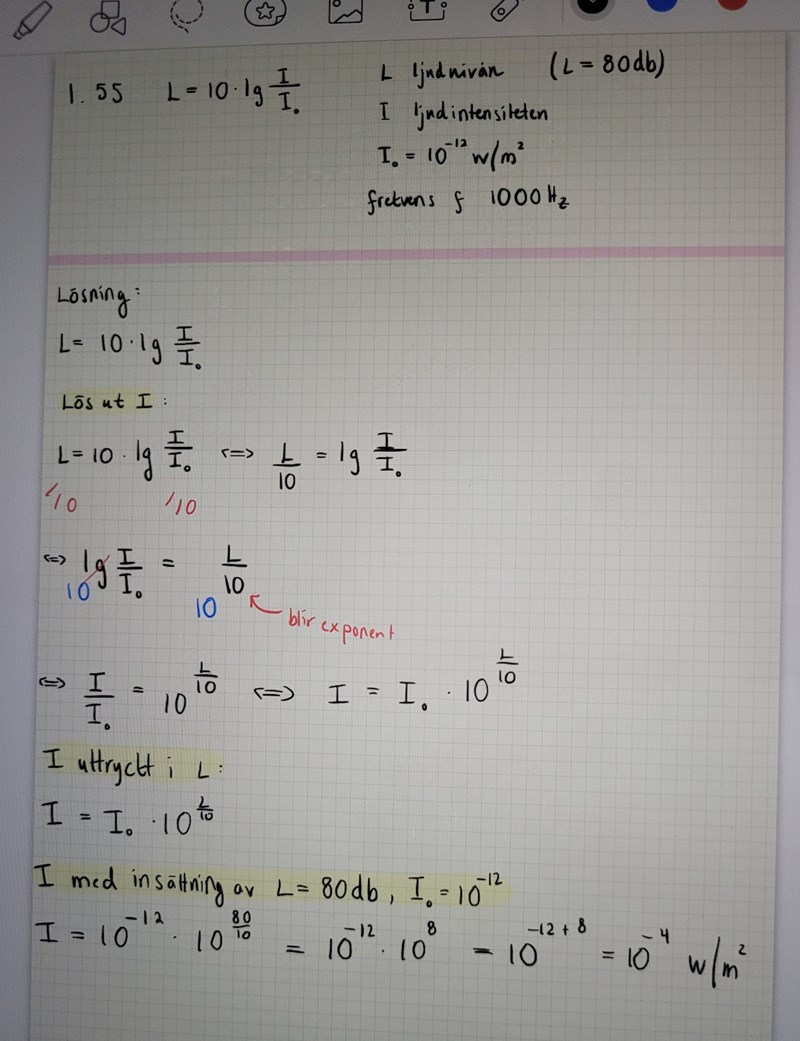 1.55 L = 10 · lg I/I₀ L ljudnivån (L = 80db)
I ljudintensiteten
I₀ = 10⁻¹² w/m²
frekvens f 1000 Hz
Lösning:
L = 10 · lg I/I₀
Lös ut I :
L = 10 · lg I/I₀ <=> L/10 = lg I/I₀
/10 /10
<=> 10^(lg I/I₀) = 10^(L/10)
blir exponent
<=> I/I₀ = 10^(L/10) <=> I = I₀ · 10^(L/10)
I uttryckt i L :
I = I₀ · 10^(L/10)
I med insättning av L = 80db, I₀ = 10⁻¹²
I = 10⁻¹² · 10^(80/10) = 10⁻¹² · 10⁸ = 10^(-12+8) = 10⁻⁴ w/m²